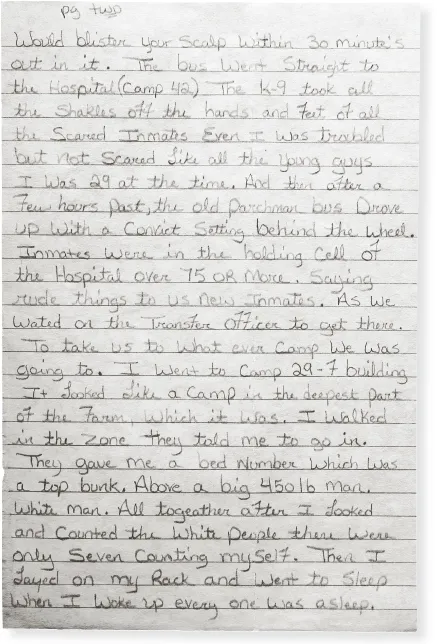 pg two
Would blister your Scalp within 30 minute's
out in it. The bus went Straight to
the Hospital (Camp 42) The K-9 took all
the Shakles off the hands and feet of all
the Scared Inmates Even I was troubled
but not Scared like all the young guys
I was 29 at the time. And then after a
Few hours past, the old parchman bus Drove
up with a Convict Setting behind the wheel.
Inmates were in the holding Cell of
the Hospital over 75 OR More. Saying
rude things to us New Inmates. As we
wated on the Transfer Officer to get there.
To take us to what ever Camp we was
going to. I went to Camp 29-7 building
It looked like a Camp in the deepest part
of the Farm, which it was. I walked
in the Zone they told me to go in.
They gave me a bed Number which was
a top bunk. Above a big 450 lb man.
White man. All togeather after I looked
and Counted the White people there were
only Seven Counting myself. Then I
layed on my Rack and went to Sleep
when I woke up every one was asleep.